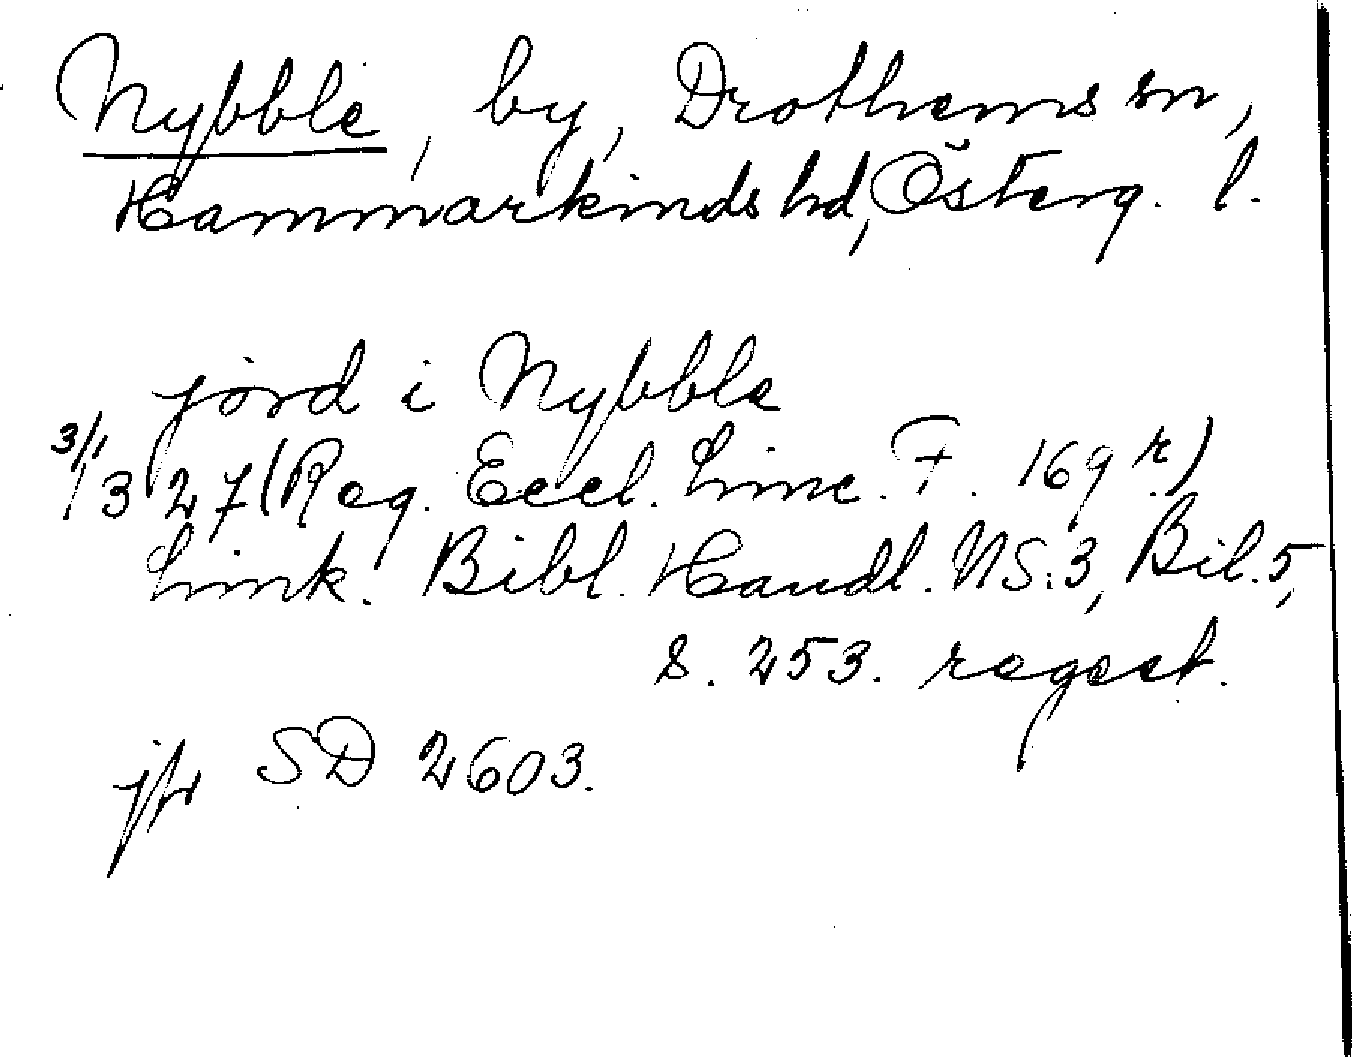 Nybble, by, Drothems sn,
Hammarkinds hd, Österg. l.
jord i Nybble
3/1 1327 (Reg. Eccl. Linc. F. 169 r)
Link. Bibl. Handl. NS:3, Bil. 5,
s. 253. regest.
jfr SD 2603.